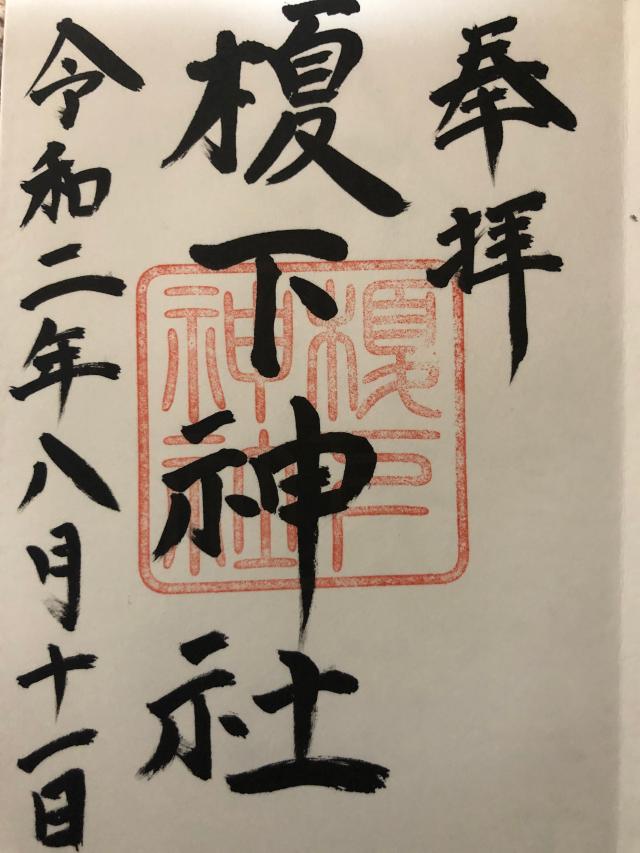 奉拝
榎下神社
榎下神社
令和二年八月十一日